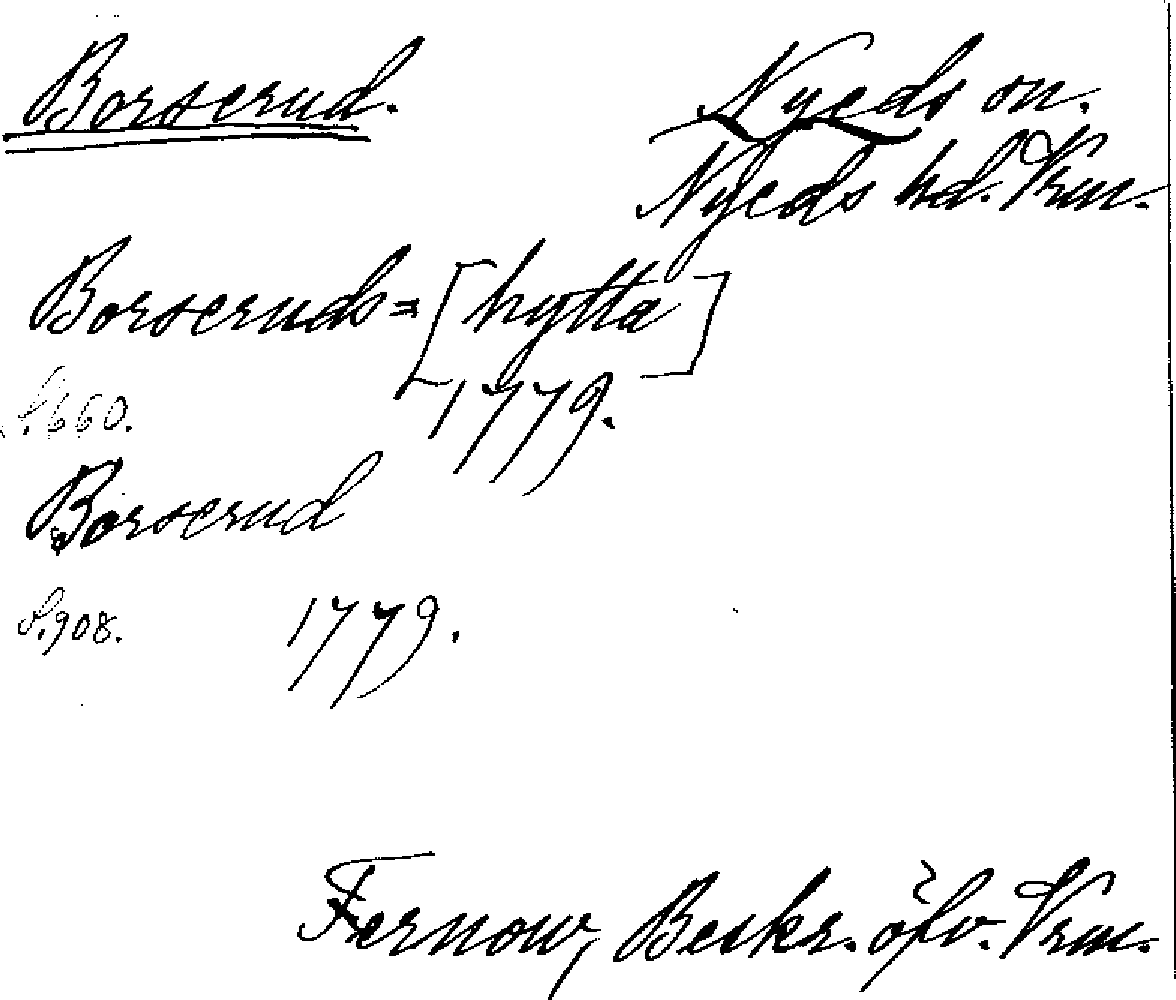 Borserud.
Nyeds sn.
Nyeds hd. Vrm.
Borseruds= [hytta]
S. 660. 1779.
Borserud
S. 908. 1779.
Fernow, Beskr. öfv. Vrm.